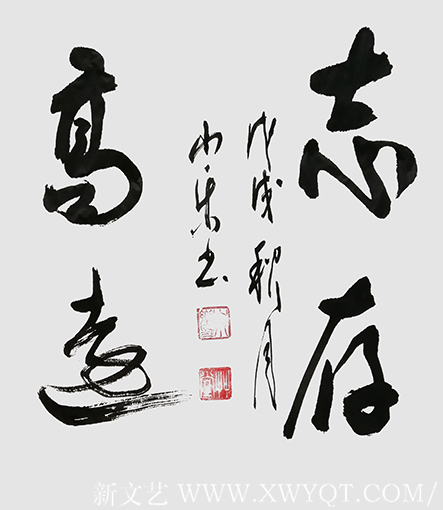 志存
高远
戊戌秋月
小朱书
新文艺 WWW.XWYQT.COM/